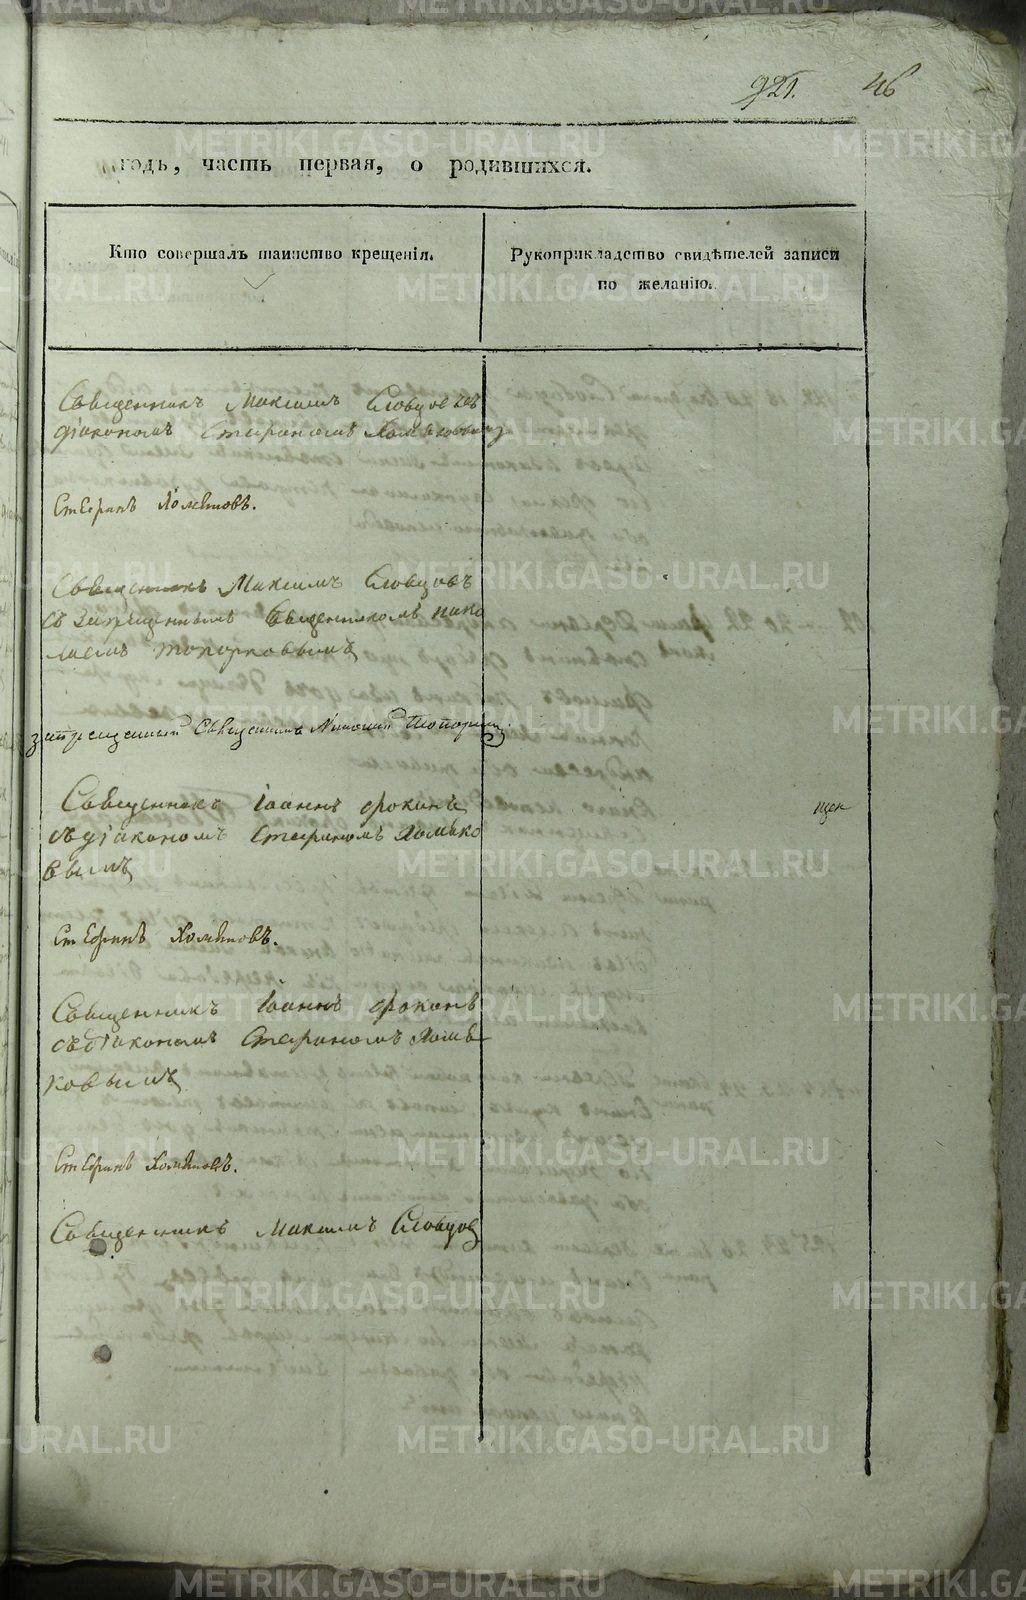 921. 46
годъ, часть первая, о родившихся.
Кто совершалъ таинство крещенія.
Рукоприкладство свидѣтелей записи
по желанію.
Священникъ Максимъ Словцов съ
діакономъ Стефаномъ Хомяковымъ
Стефанъ Хомяковъ.
Священникъ Максимъ Словцовъ
съ запрещеннымъ священникомъ Нико
лаемъ Топорковымъ
запрещенный Священникъ Николай
Священникъ Іоаннъ Фокинъ
съ діакономъ Стефаномъ Хомяко
вымъ
Стефанъ Хомяковъ.
Священникъ Іоаннъ Фокинъ
съ діакономъ Стефаномъ Хомя
ковымъ
Стефанъ Хомяковъ.
Священникъ Максимъ Словцов
METRIKI.GASO-URAL.RU